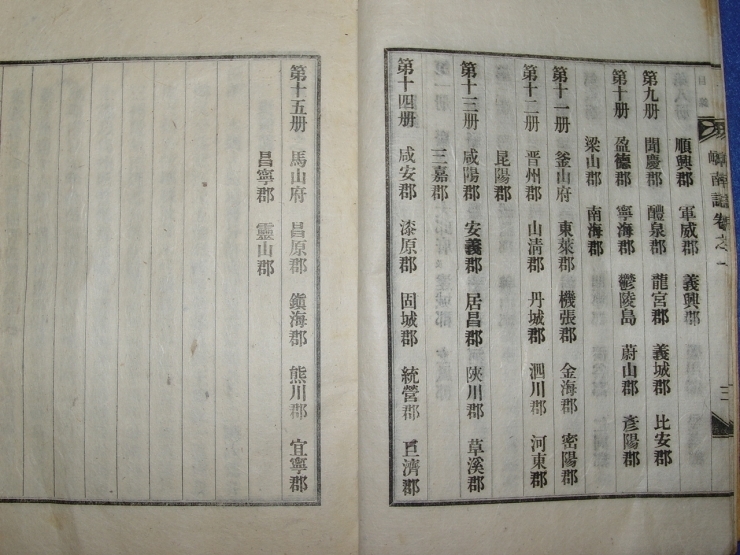 嶠南誌卷之一
順興郡 軍威郡 義興郡
第九册 聞慶郡 醴泉郡 龍宮郡 義城郡 比安郡
第十册 盈德郡 寧海郡 鬱陵島 蔚山郡 彥陽郡
梁山郡 南海郡
第十一册 釜山府 東萊郡 機張郡 金海郡 密陽郡
第十二册 晋州郡 山淸郡 丹城郡 泗川郡 河東郡
昆陽郡
第十三册 咸陽郡 安義郡 居昌郡 陜川郡 草溪郡
三嘉郡
第十四册 咸安郡 漆原郡 固城郡 統營郡 巨濟郡
第十五册 馬山府 昌原郡 鎭海郡 熊川郡 宜寧郡
昌寧郡 靈山郡